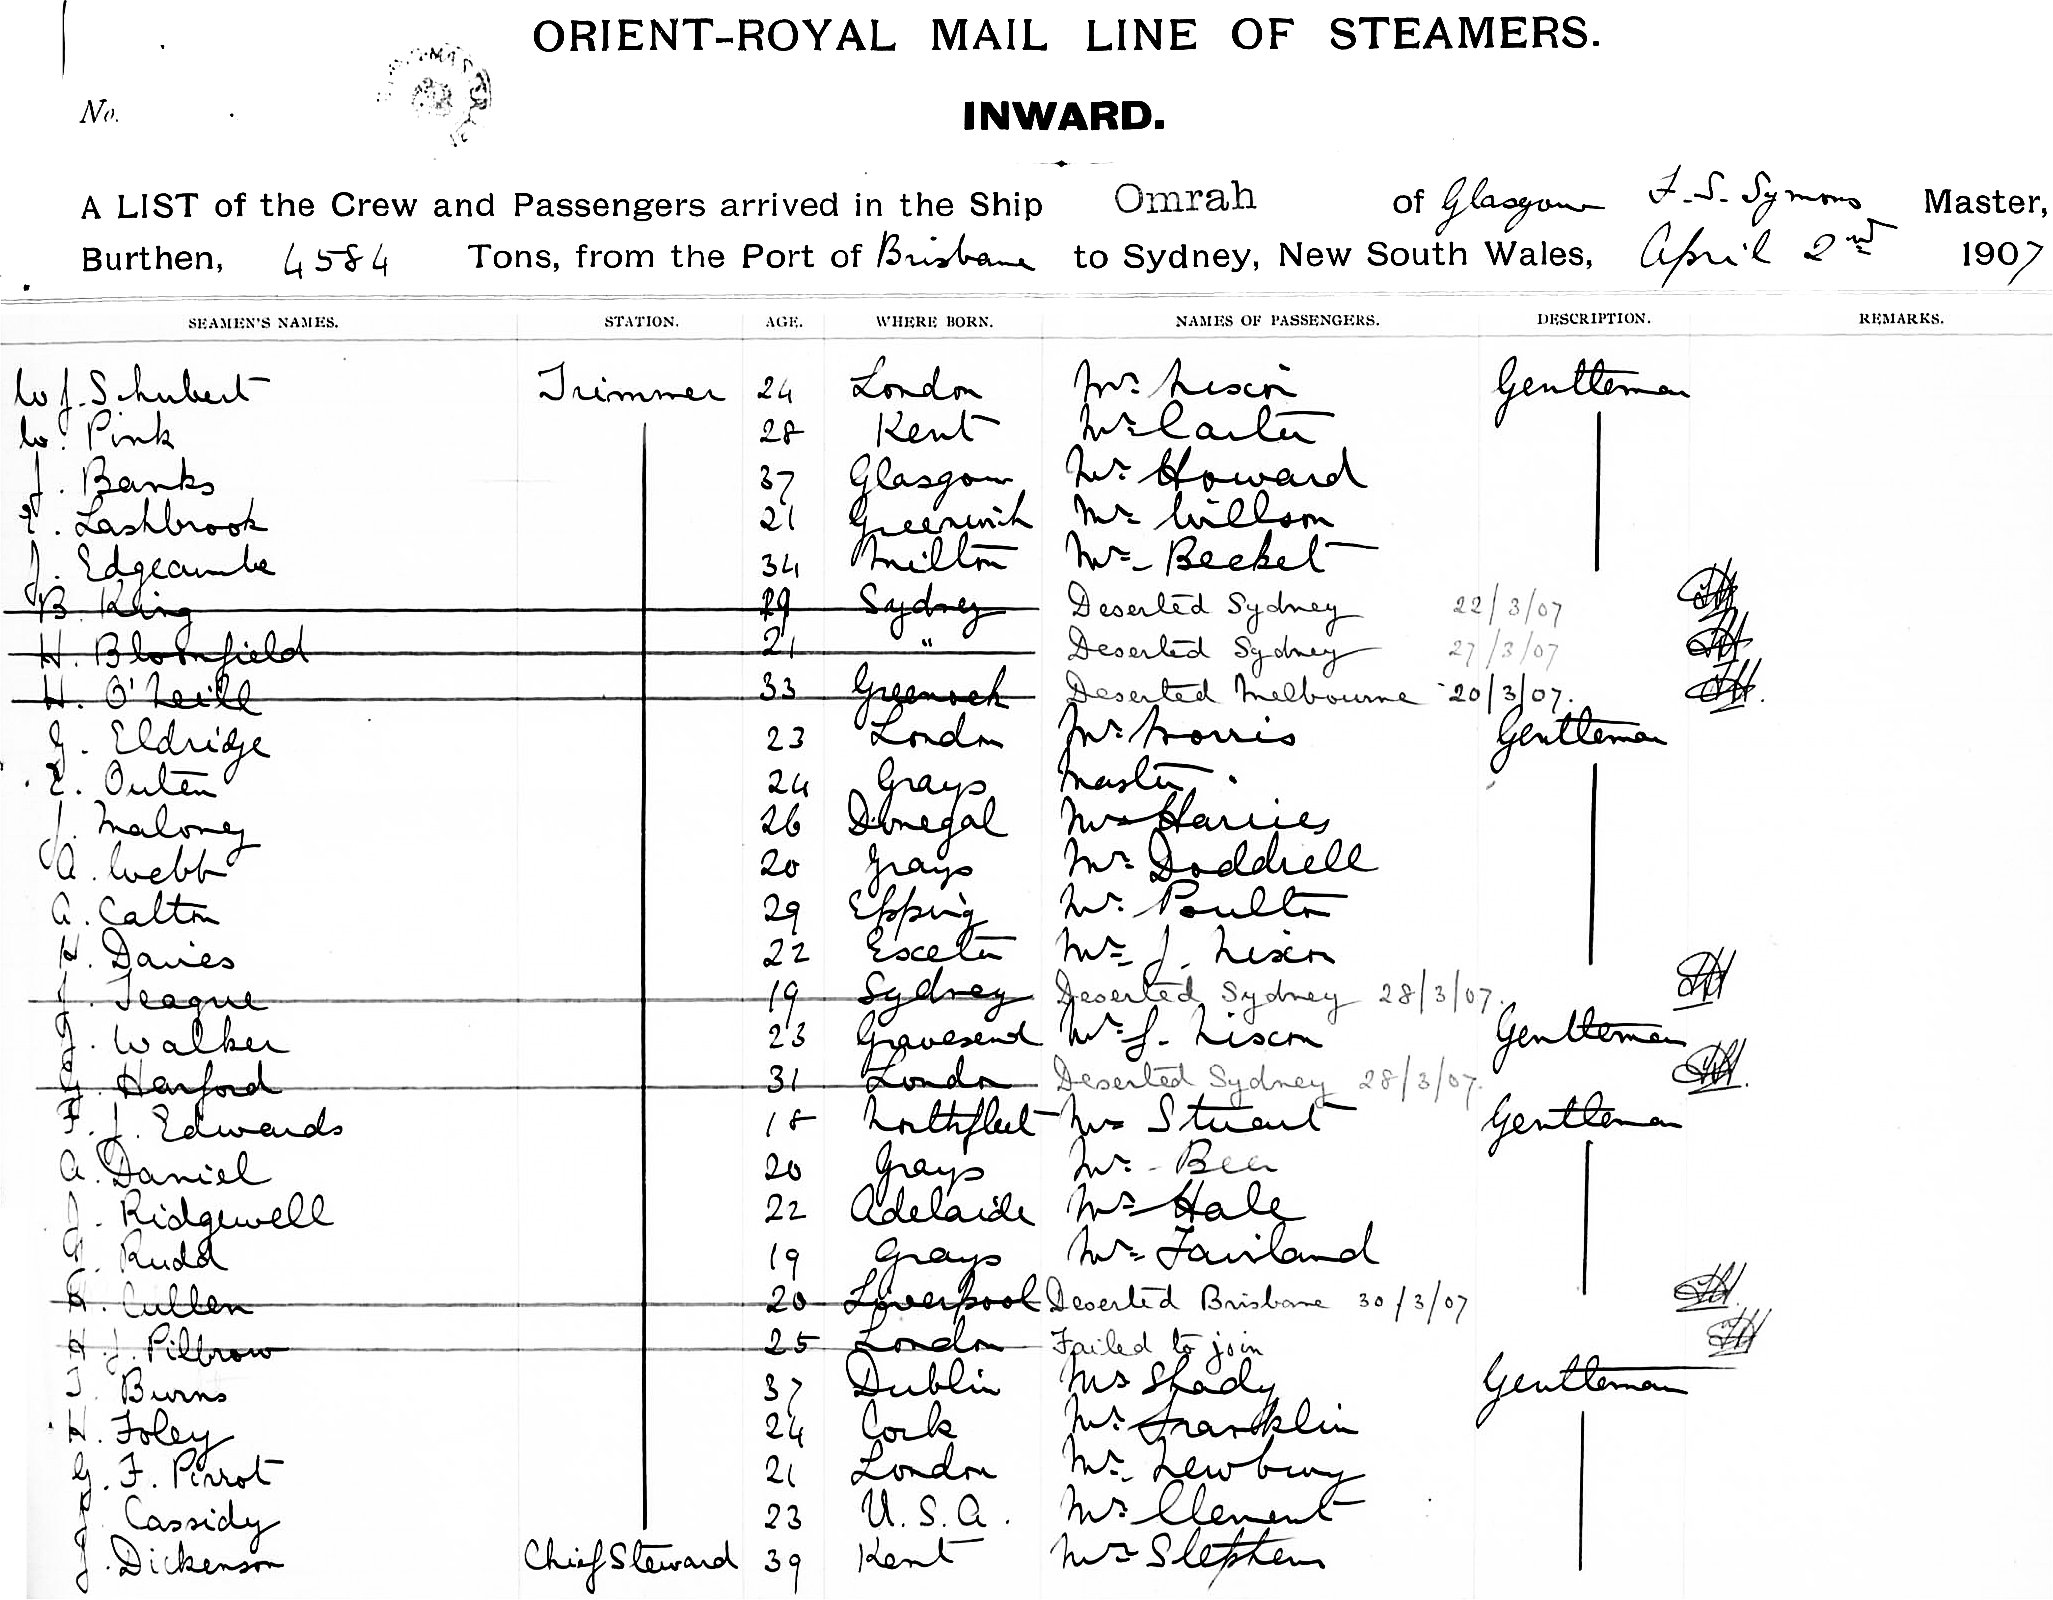 ORIENT-ROYAL MAIL LINE OF STEAMERS.
No.
INWARD.
A LIST of the Crew and Passengers arrived in the Ship Omrah of Glasgow F. S. Symons Master,
Burthen, 4584 Tons, from the Port of Brisbane to Sydney, New South Wales, April 2nd 1907
SEAMEN'S NAMES. STATION. AGE. WHERE BORN. NAMES OF PASSENGERS. DESCRIPTION. REMARKS.
W J. Schubert Trimmer 24 London Mr. Nixon Gentleman
W. Pink 28 Kent Mr Carter
J. Banks 37 Glasgow Mr. Howard
Lashbrook 21 Greenwich Mr Willson
J. Edgecumbe 34 Milton Mr. Becket
B. King 29 Sydney Deserted Sydney 22/3/07
H. Bloomfield 21 " Deserted Sydney 27/3/07
H. O'Neill 33 Greenock Deserted Melbourne 20/3/07.
G. Eldridge 23 London Mr Norris Gentleman
E. Outen 24 Grays Master "
J. Maloney 26 Donegal Mr Harries
A. Webb 20 Grays Mr. Doddrell
A. Calton 29 Epping Mr. Poulton
H. Davies 22 Exeter Mr. J. Nixon
J. Teague 19 Sydney Deserted Sydney 28/3/07.
J. Walker 23 Gravesend Mr. Nixon Gentleman
G. Harford 31 London Deserted Sydney 28/3/07.
F. J. Edwards 18 Northfleet Mr Stuart Gentleman
A. Daniel 20 Grays Mr. Beer
J. Ridgewell 22 Adelaide Mr Hale
Rudd 19 Grays Mr. Fairland
H. Cullen 20 Liverpool Deserted Brisbane 30/3/07
H. J. Pilbrow 25 London Failed to join
T. Burns 37 Dublin Mr Shady Gentleman
H. Foley 24 Cork Mr. Franklin
G. F. Pirrot 21 London Mr. Newbury
J. Cassidy 23 U. S. A. Mr. Clement
J. Dickenson Chief Steward 39 Kent Mr Stephens